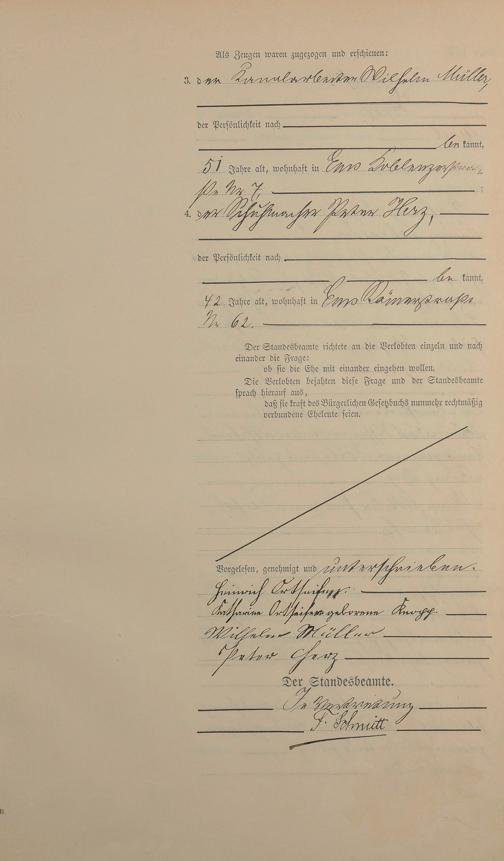 Als Zeugen waren zugezogen und erschienen:
3. der Kanalarbeiter Wilhelm Müller,
der Persönlichkeit nach
be kannt,
51 Jahre alt, wohnhaft in Ems Koblenzerstra-
ße Nr 7,
4. der Schuhmacher Peter Herz,
der Persönlichkeit nach
be kannt,
42 Jahre alt, wohnhaft in Ems Römerstraße
Nr 62.
Der Standesbeamte richtete an die Verlobten einzeln und nach
einander die Frage:
ob sie die Ehe mit einander eingehen wollen.
Die Verlobten bejahten diese Frage und der Standesbeamte
sprach hierauf aus,
daß sie kraft des Bürgerlichen Gesetzbuchs nunmehr rechtmäßig
verbundene Eheleute seien.
Vorgelesen, genehmigt und unterschrieben.
Heinrich
Katharina geborene Knopp
Wilhelm Müller
Peter Herz
Der Standesbeamte.
In Vertretung
F. Schmitt